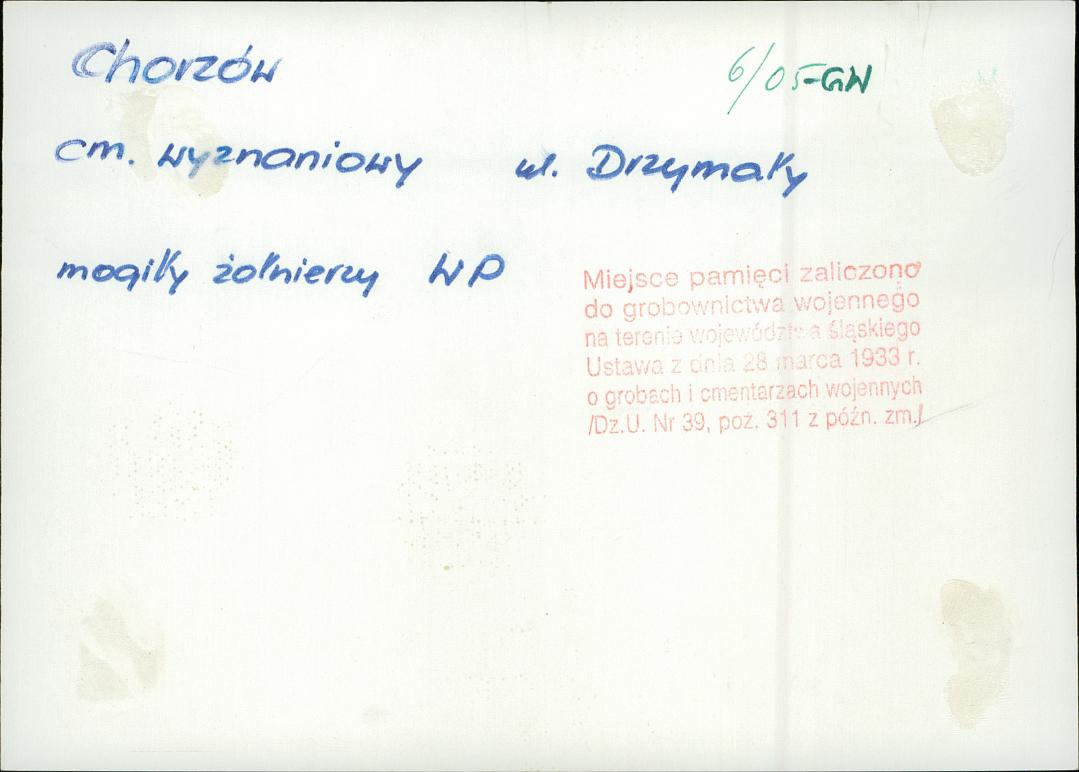 Chorzów
6/05-GW
cm. wyznaniowy ul. Drzymały
mogiły żołnierzy WP
Miejsce pamięci zaliczono
do grobownictwa wojennego
na terenie województwa śląskiego
Ustawa z dnia 28 marca 1933 r.
o grobach i cmentarzach wojennych
/Dz.U. Nr 39, poz. 311 z późn. zm./